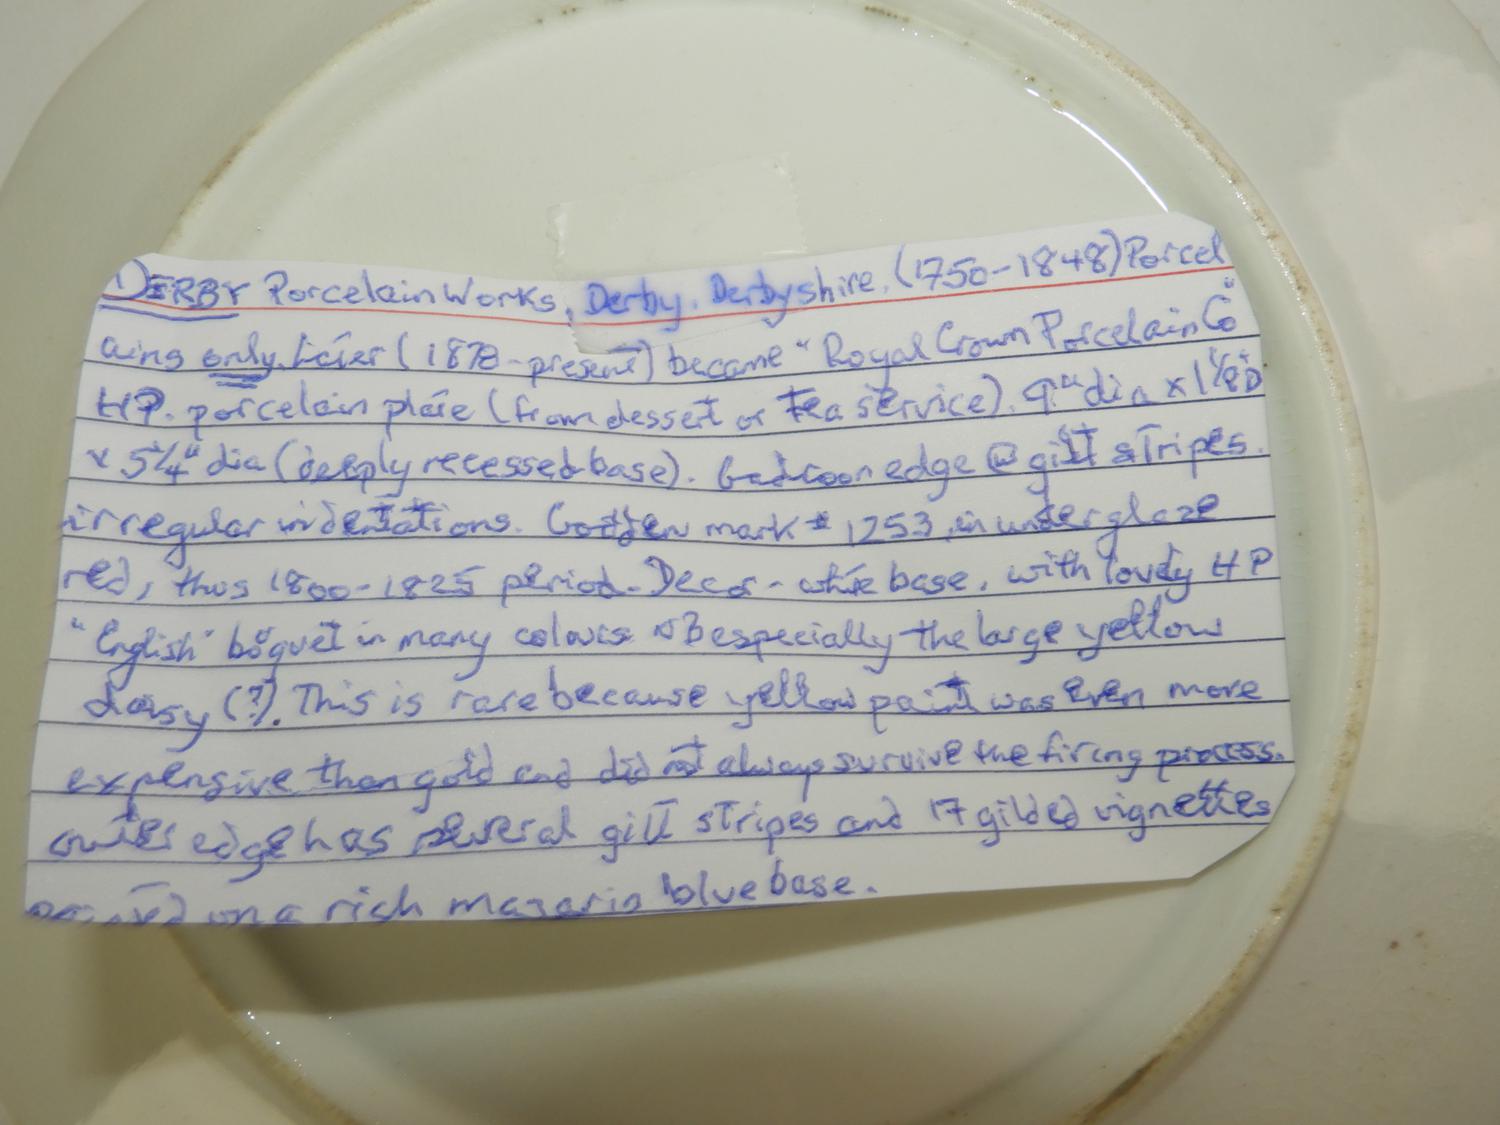 DERBY Porcelain Works, Derby. Derbyshire. (1750-1848) Porcel
aing only. Later (1878-present) became "Royal Crown Porcelain Co"
HP. porcelain plate (from dessert or tea service). 9" dia x 1 1/8" D
x 5 1/4" dia (deeply recessed base). Gadroon edge @ gilt stripes.
irregular indentations. Godden mark # 1253, in underglaze
red, thus 1800-1825 period. Decor - white base, with lovely HP
"English" boquet in many colours NB especially the large yellow
daisy (?). This is rare because yellow paint was even more
expensive than gold and did not always survive the firing process.
outer edge has several gilt stripes and 17 gilded vignettes
on a rich mazarin blue base.